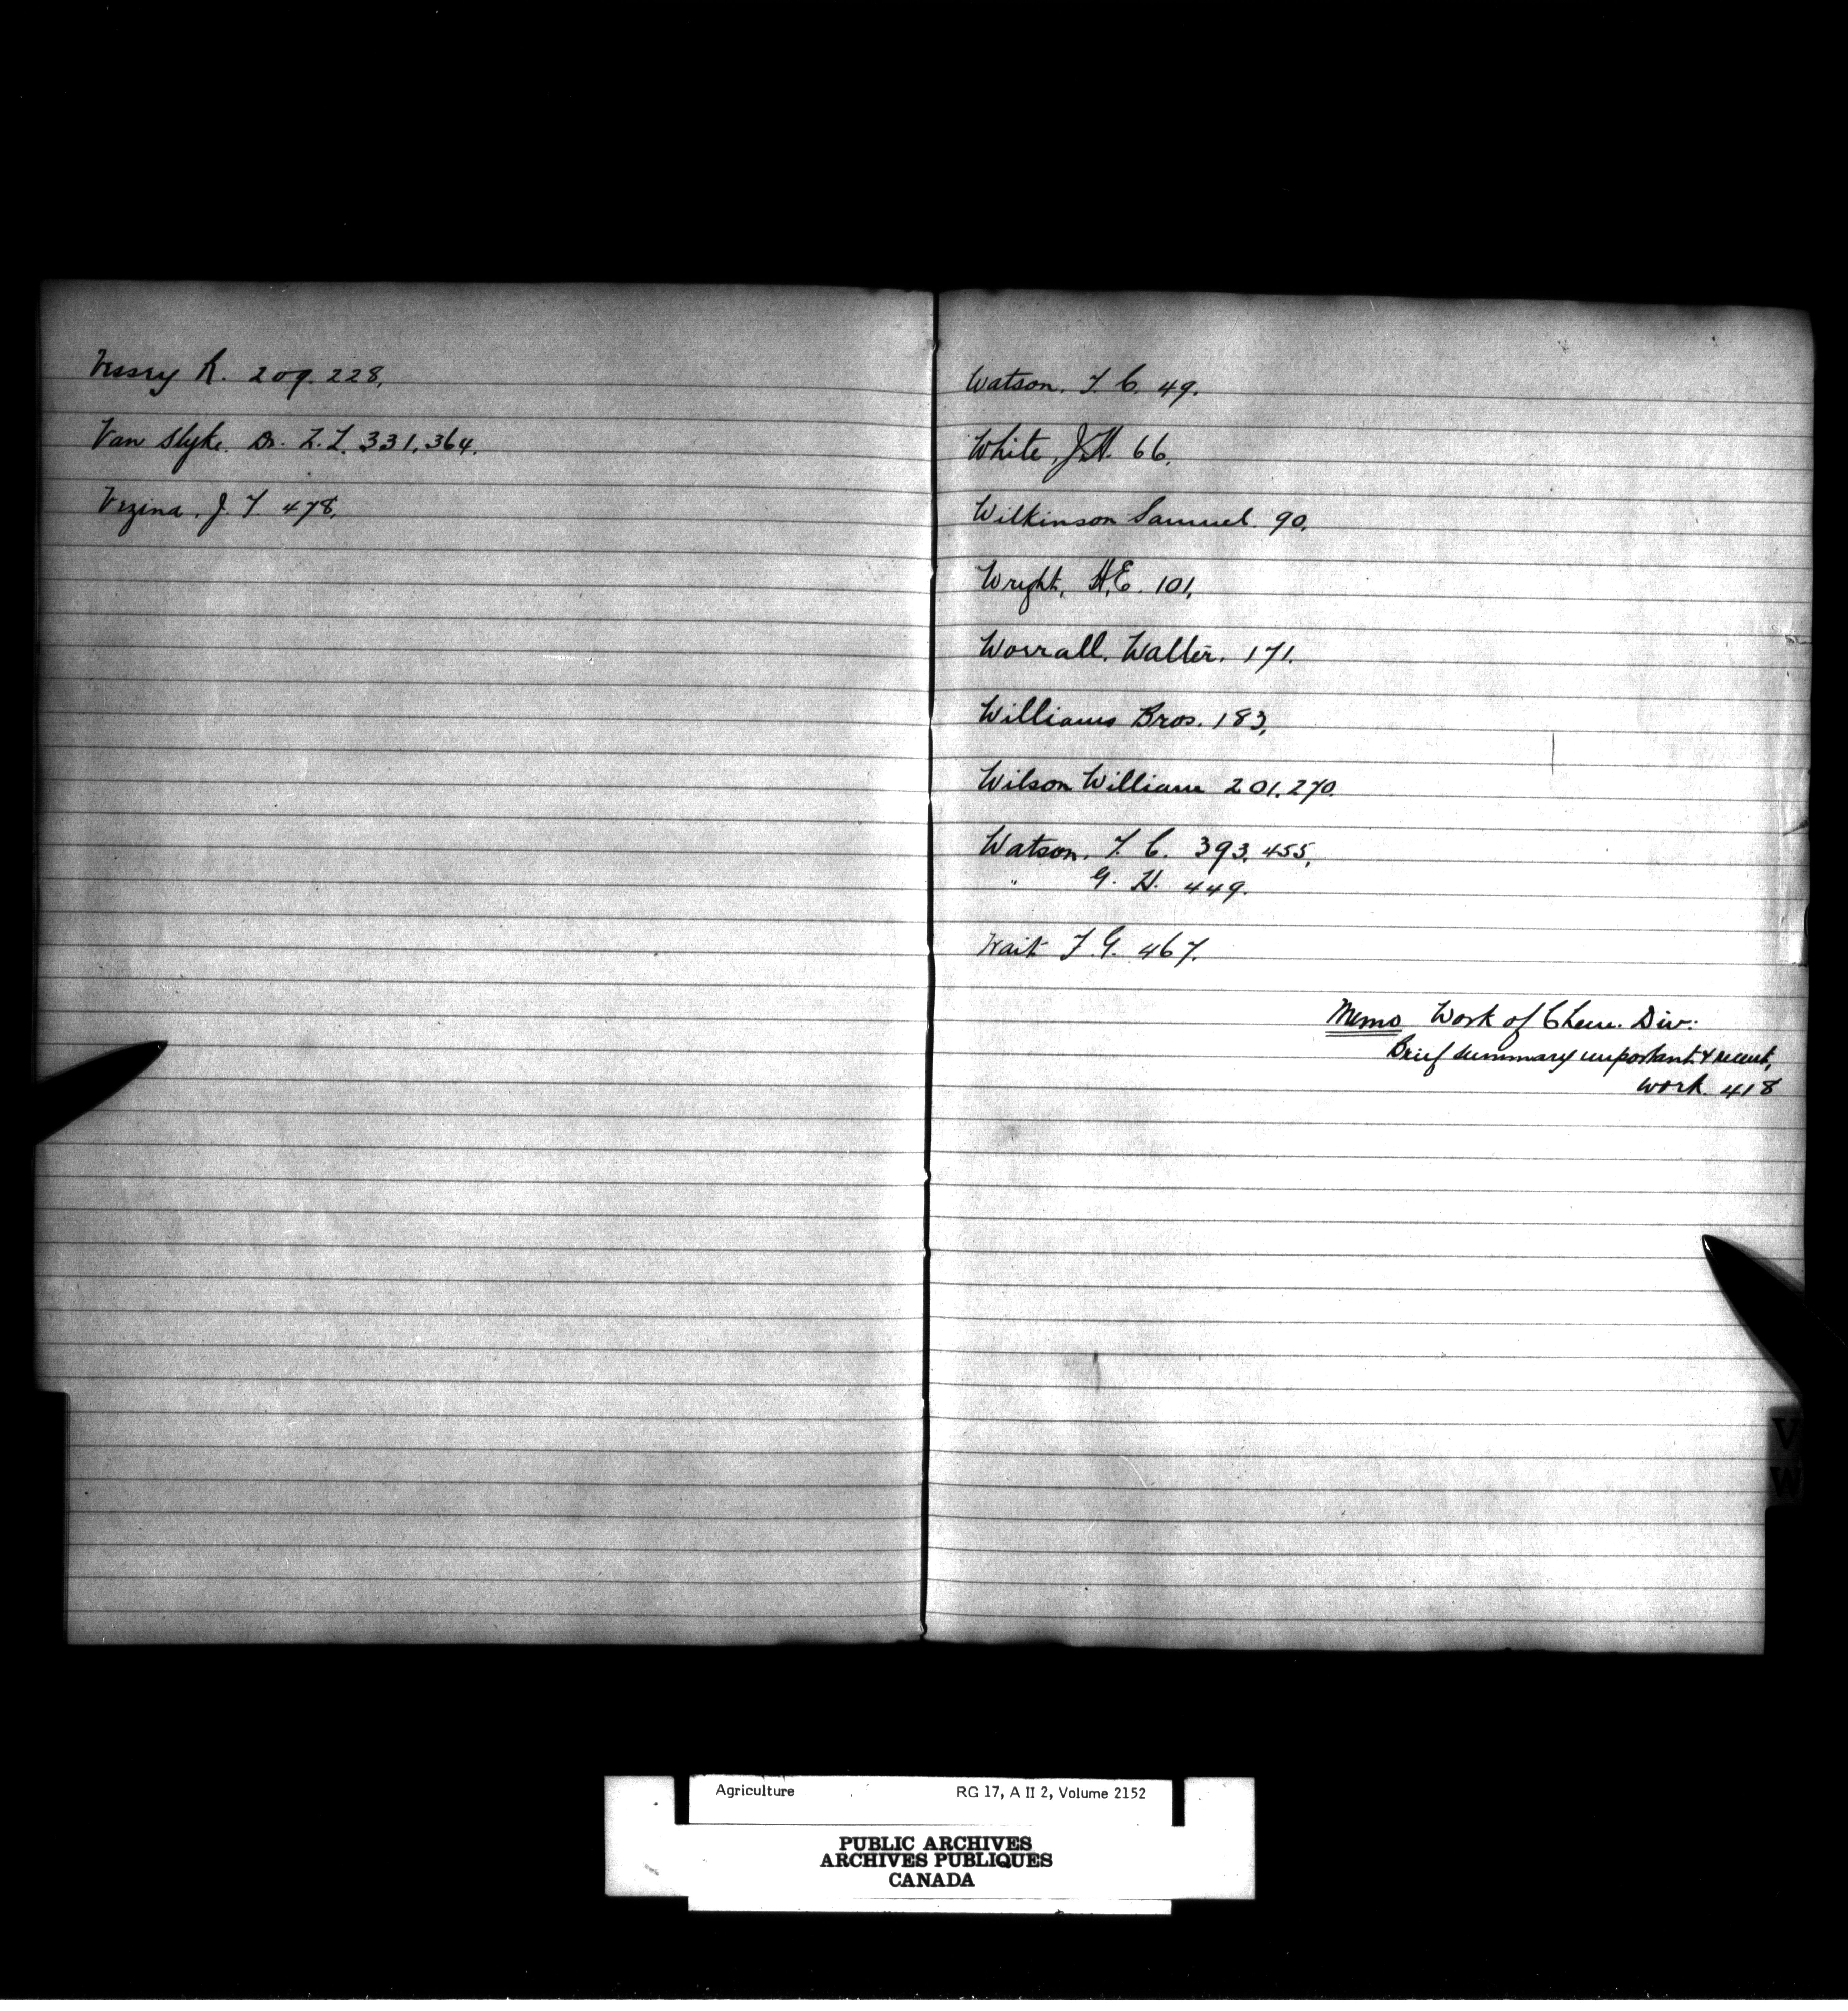 Vessey R. 209. 228,
Van Slyke. Dr. L. L. 331, 364.
Vezina. J. F. 478,
Watson. F. C. 49.
White, J.H. 66,
Wilkinson Samuel. 90,
Wright, H.E. 101,
Worrall. Walter. 171.
Williams Bros. 183,
Wilson William 201. 270.
Watson. F. C. 393, 455,
" G. H. 449.
Wait F. G. 467.
Memo Work of Chem. Div:
Brief summary important & recent,
work. 418
V
W
Agriculture RG 17, A II 2, Volume 2152
PUBLIC ARCHIVES
ARCHIVES PUBLIQUES
CANADA